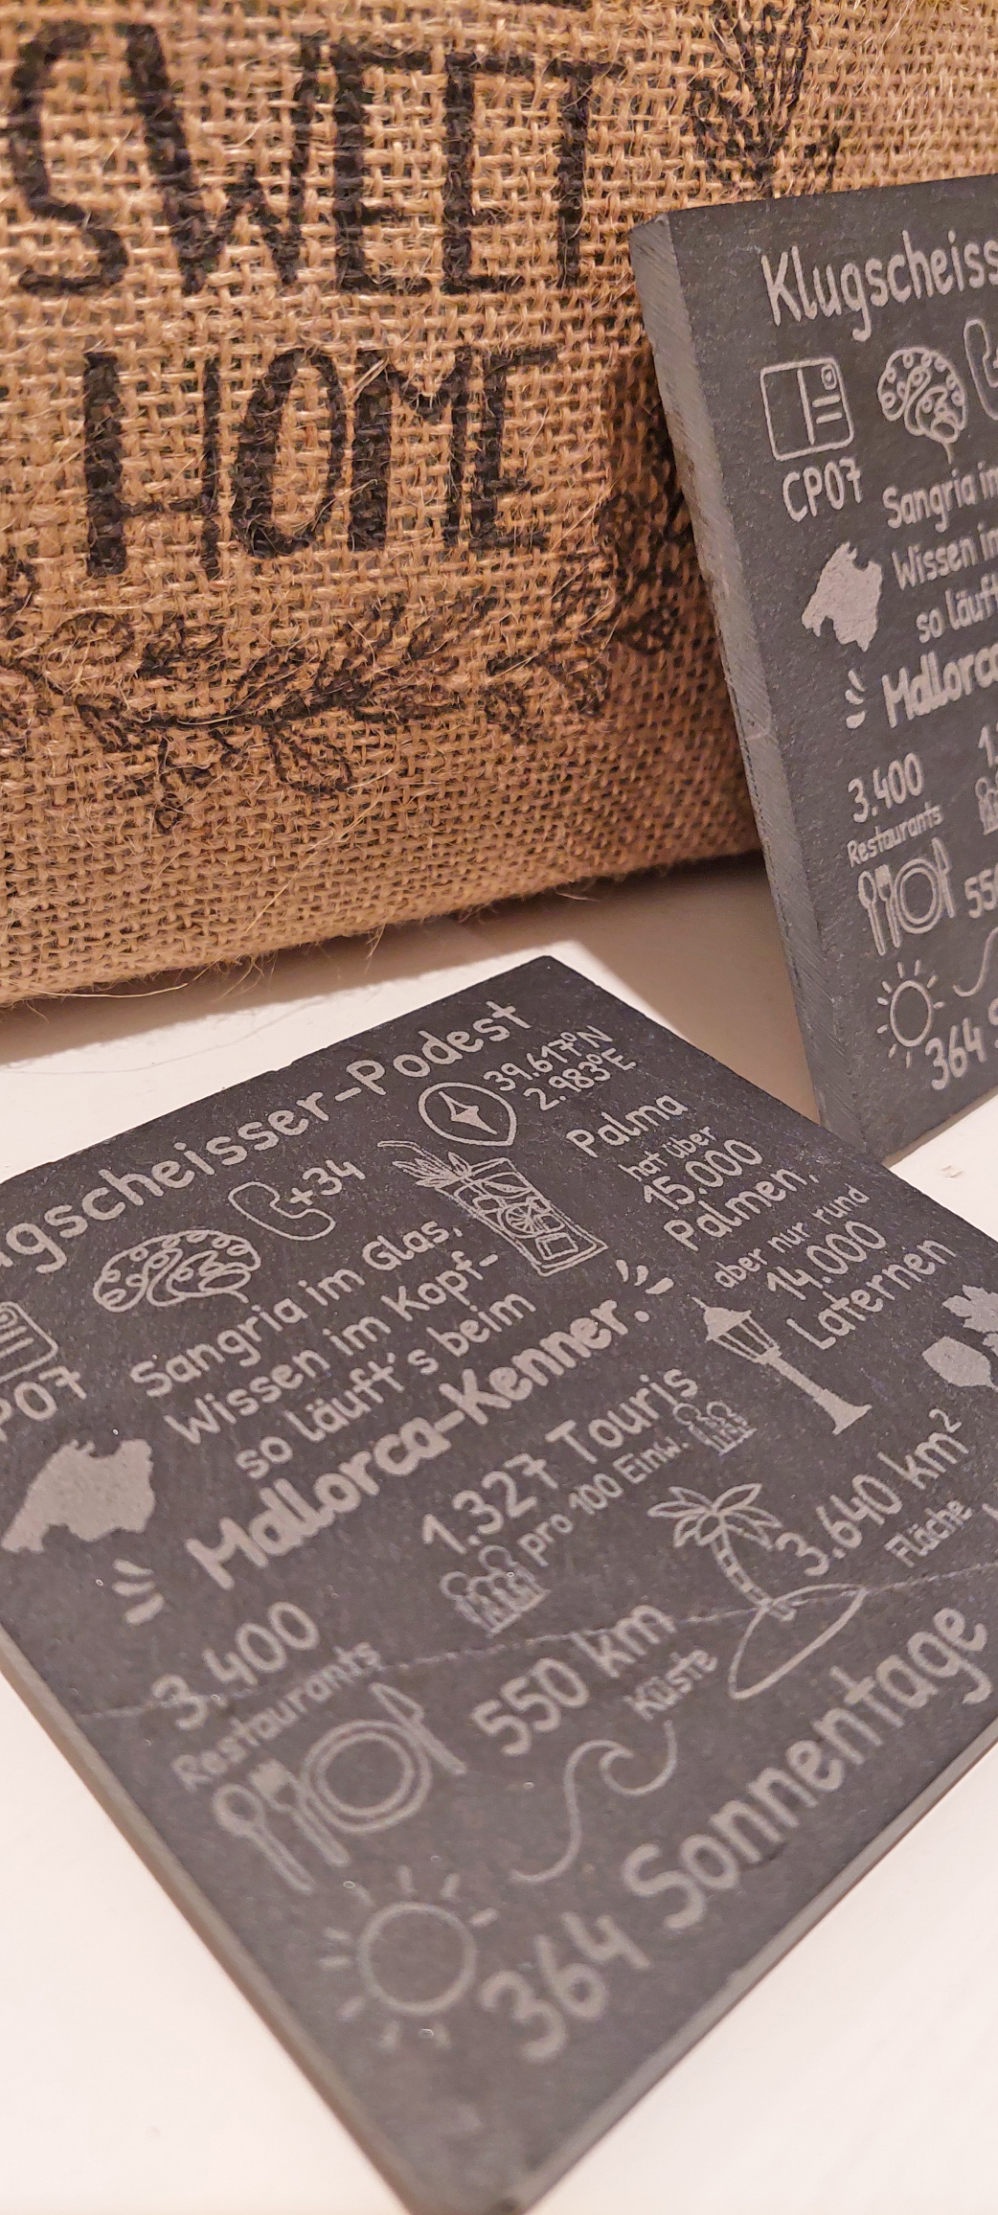 SWEET
HOME
Klugscheiss
CP07
Sangria im
Wissen im
so läuft
Mallorca
3.400
Restaurants
55
364 S
gscheisser-Podest
39.617°N
2.983°E
+34
P07
Sangria im Glas,
Wissen im Kopf-
so läuft's beim
Mallorca-Kenner.
Palma
hat über
15.000
Palmen,
aber nur rund
14.000
Laternen
1.327 Touris
pro 100 Einw.
3.640 km²
Fläche
3.400
Restaurants
550 km
Küste
364 Sonnentage